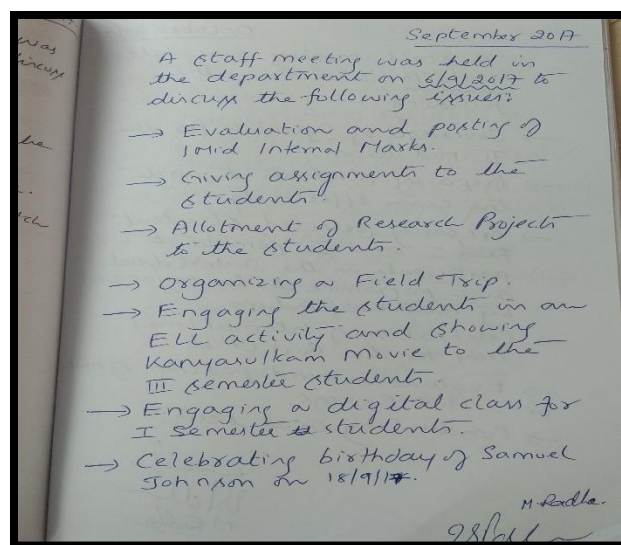 was
discuss
be
tch
September 2017
A staff meeting was held in
the department on 6/9/2017 to
discuss the following issues:
→ Evaluation and posting of
I Mid Internal Marks.
→ Giving assignments to the
students.
→ Allotment of Research Projects
to the students.
→ Organizing a Field Trip.
→ Engaging the students in an
ELL activity and showing
Kanyasulkam Movie to the
III semester students.
→ Engaging a digital class for
I Semester students.
→ Celebrating birthday of Samuel
Johnson on 18/9/17.
M. Radha.